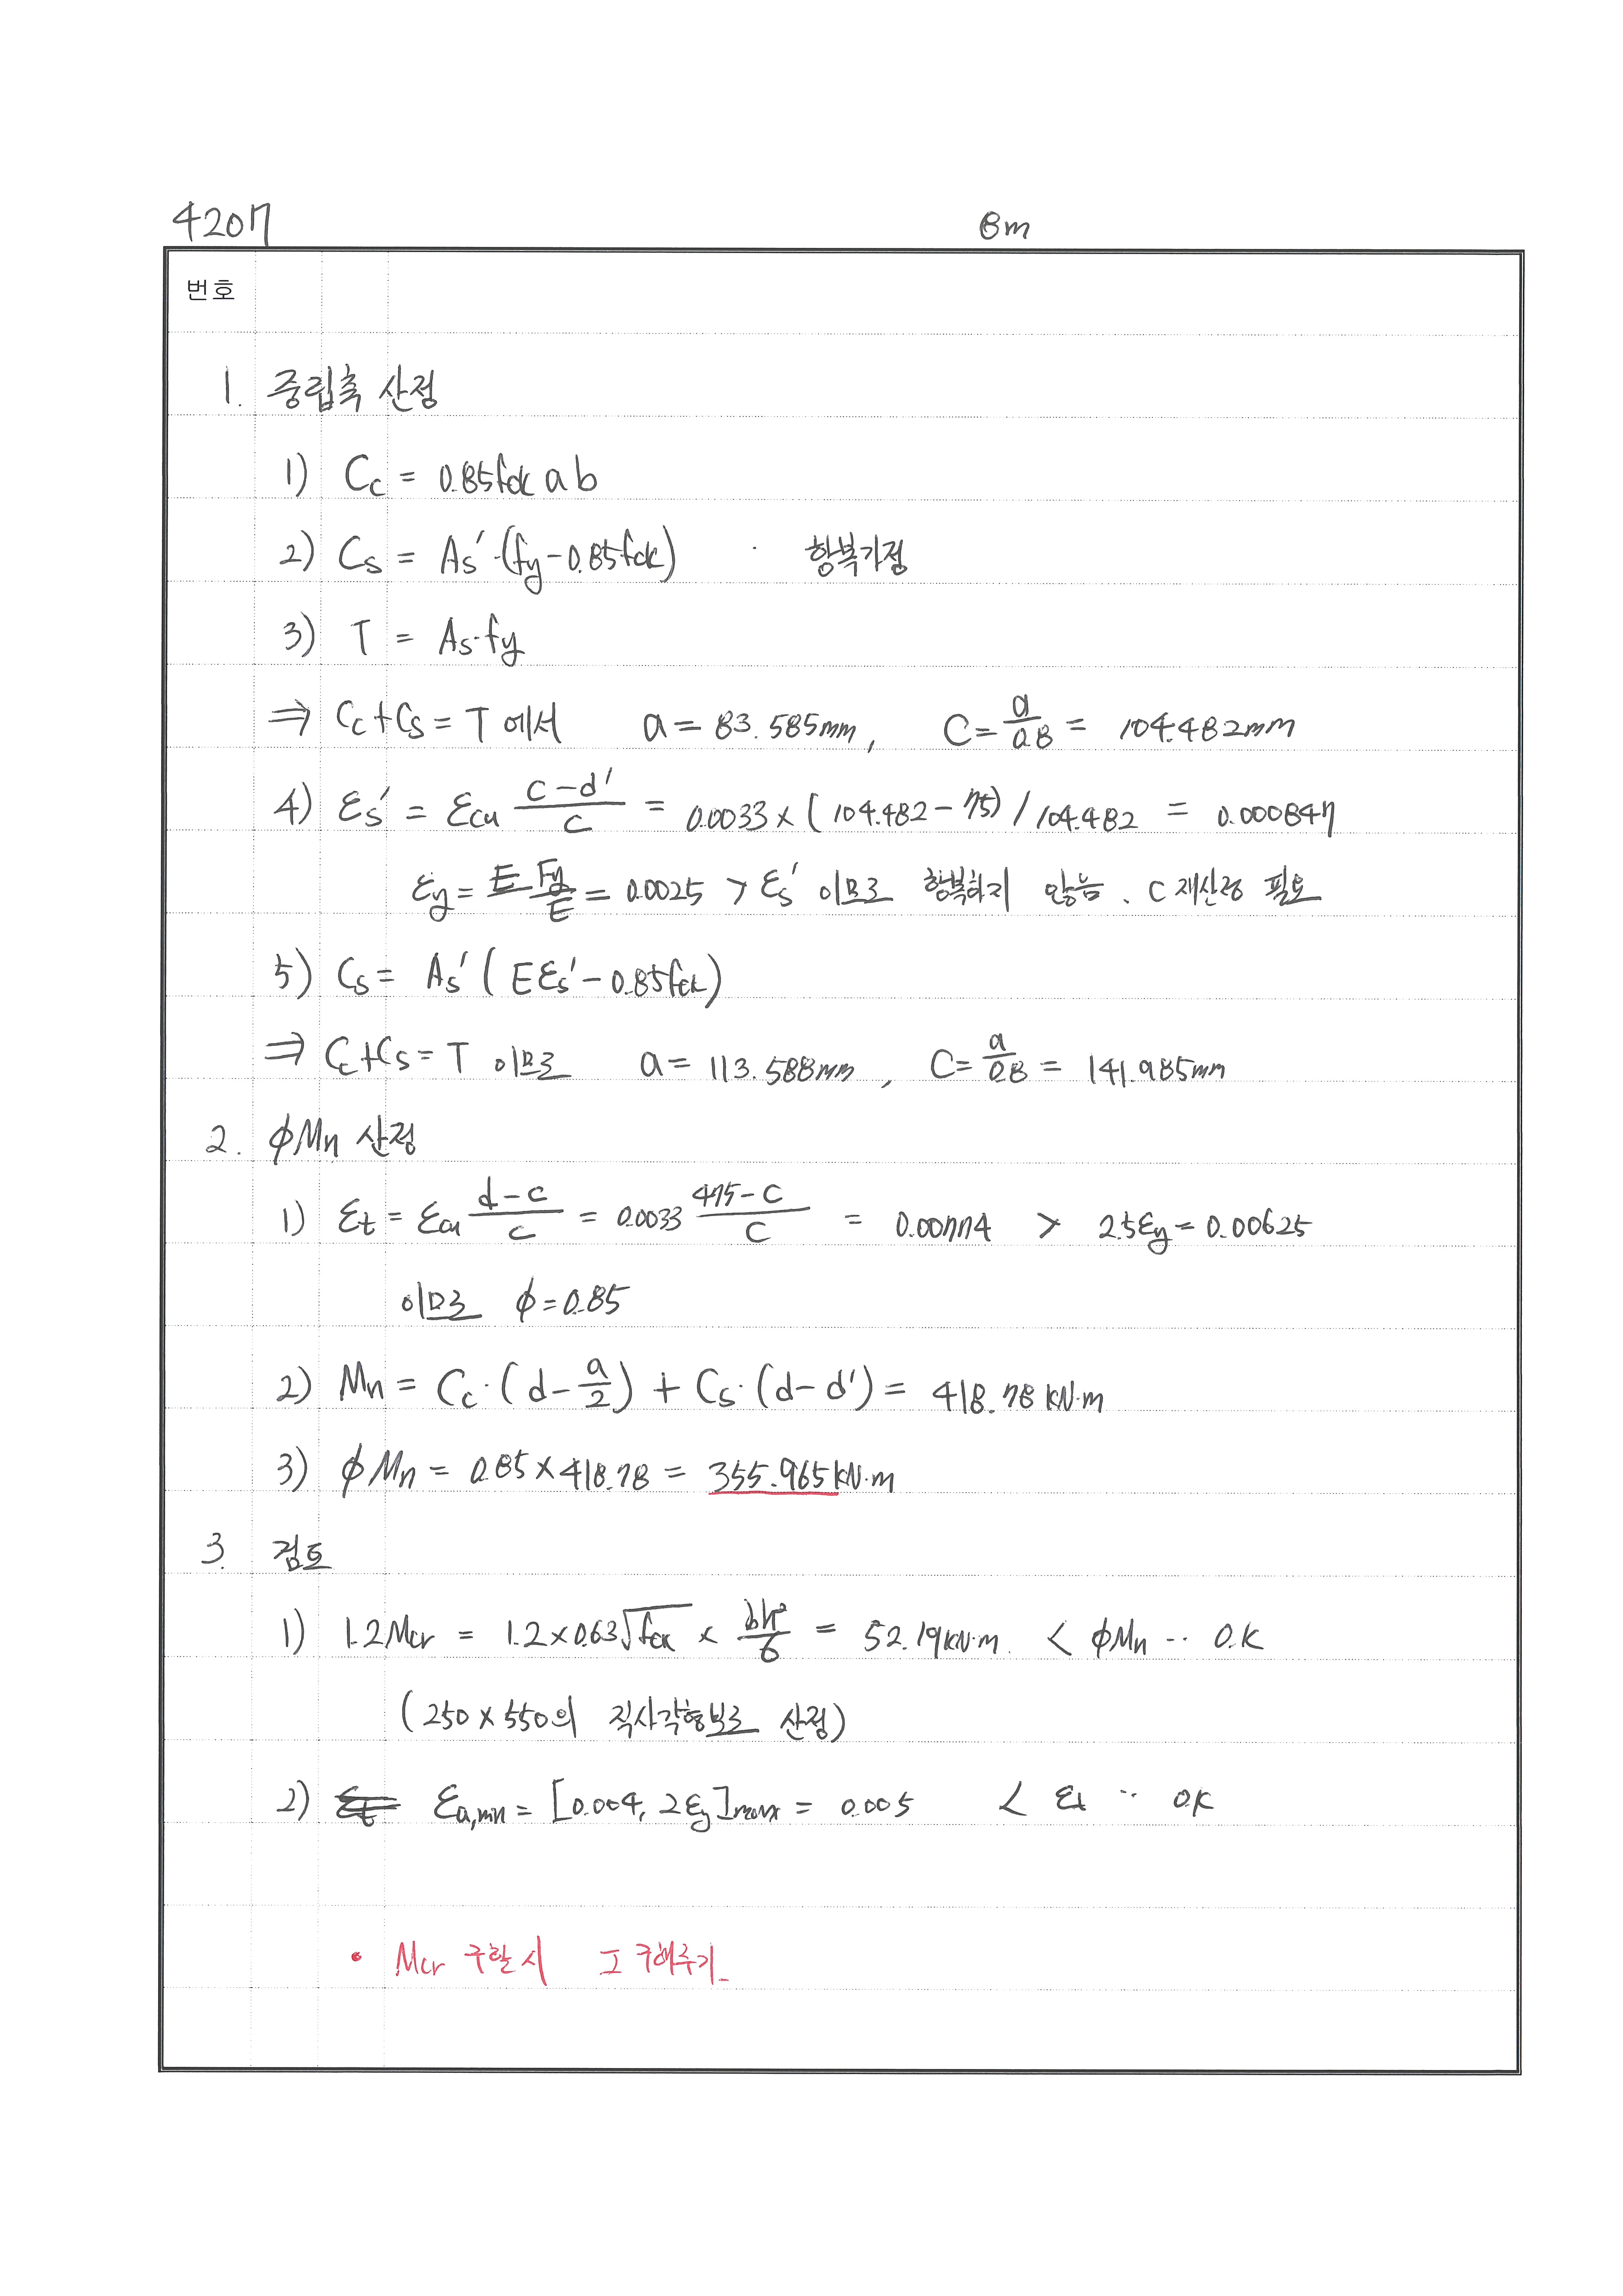 4207 8m
번호
1. 중립축 산정
1) Cc = 0.85fck a b
2) Cs = As'·(fy-0.85fck) · 항복가정
3) T = As·fy
⇒ Cc+Cs = T 에서 a = 83.585mm, C = a/0.8 = 104.482mm
4) εs' = εcu (c-d')/c = 0.0033×(104.482-75)/104.482 = 0.000847
εy = Fy/E = 0.0025 > εs' 이므로 항복하지 않음. C 재산정 필요
5) Cs = As'(Eεs'-0.85fck)
⇒ Cc+Cs = T 이므로 a = 113.588mm, C = a/0.8 = 141.985mm
2. φMn 산정
1) εt = εcu (d-c)/c = 0.0033 (475-c)/c = 0.00774 > 2.5εy = 0.00625
이므로 φ=0.85
2) Mn = Cc·(d-a/2) + Cs·(d-d') = 418.78 kN·m
3) φMn = 0.85×418.78 = 355.965kN·m
3. 검토
1) 1.2Mcr = 1.2×0.63√fck × bh²/6 = 52.19kN·m. < φMn ·· O.K
(250×550의 직사각형보로 산정)
2) εa,min = [0.004, 2εy]max = 0.005 < εt ·· O.K
• Mcr 구할 시 I 구해주기.